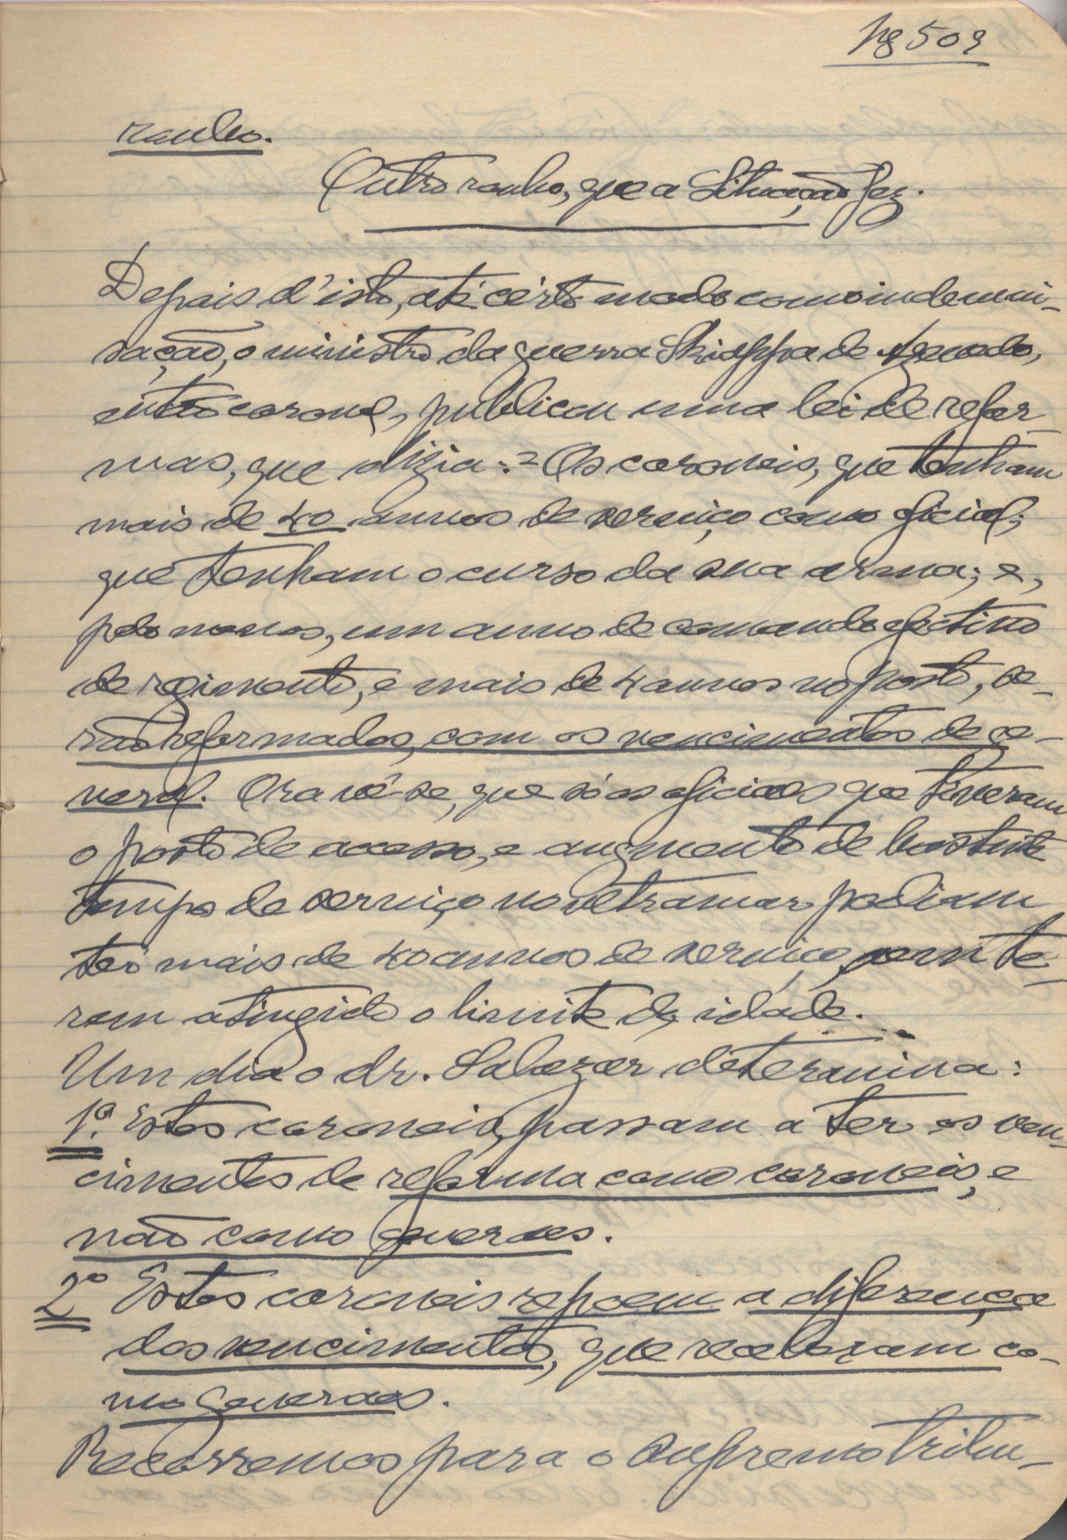 pg 509
roubo.
Outro roubo, que a Situação fez.
Depois d'isto, até cérto modo como indemni-
sação, o ministro da guerra Schiappa de Azevedo,
então coronel, publicou uma lei de refor-
mas, que dizia: = Os coroneis, que tenham
mais de 40 annos de serviço como oficial;
que tenham o curso da sua arma; e,
pelo menos, um anno de comando efectivo
de regimento, e mais de 4 annos no posto, se-
rão reformados, com os vencimentos de ge-
neral. Ora vê-se, que só os oficiaes que tiveram
o posto de acesso, e augmento de bastante
tempo de serviço no ultramar podiam
ter mais de 40 annos de serviço, sem te-
rem atingido o limite de idade.
Um dia o dr. Salazar determina:
1º. Estes coroneis, passam a ter os ven-
cimentos de reforma como coroneis, e
não como generaes.
2º Estes coroneis repoem a diferença
dos vencimentos, que receberam co-
mo generaes.
Recorremos para o Supremo Tribu-